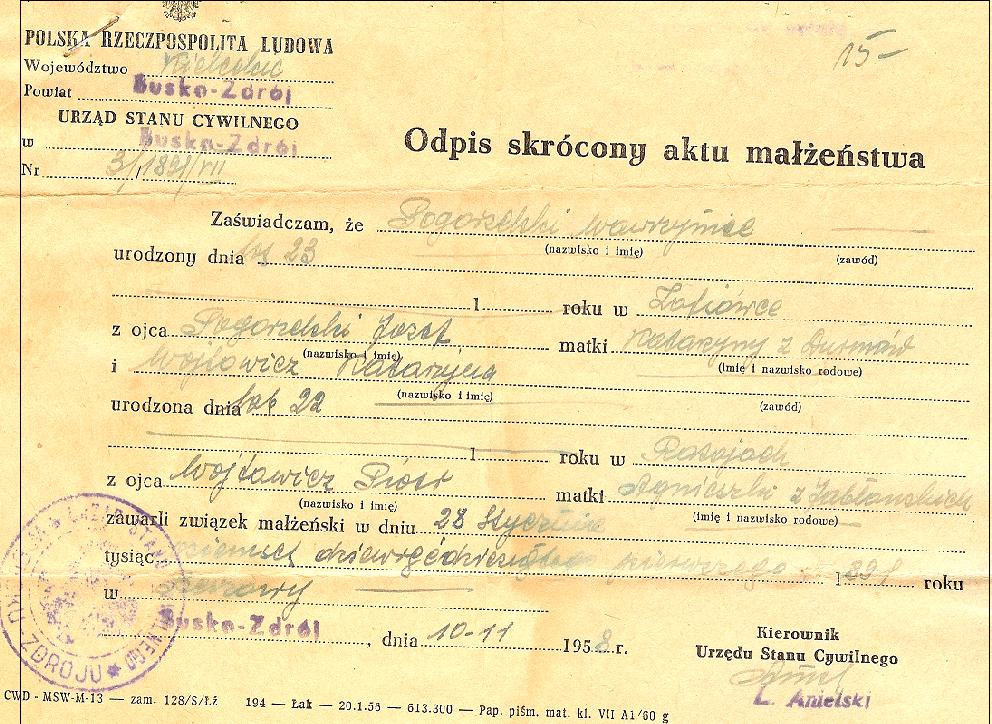 POLSKA RZECZPOSPOLITA LUDOWA
Województwo Kieleckie
Powiat Busko-Zdrój
URZĄD STANU CYWILNEGO
w Busko-Zdrój
Nr 3/1891/VII
15-
Odpis skrócony aktu małżeństwa
Zaświadczam, że Pogorzelski Wawrzyniec
(nazwisko i imię) (zawód)
urodzony dnia lat 23
1 roku w Zofiówce
z ojca Pogorzelski Józef matki Katarzyny z
(nazwisko i imię) (imię i nazwisko rodowe)
i Wójtowicz Katarzyna
(nazwisko i imię) (zawód)
urodzona dnia lat 22
1 roku w
z ojca Wójtowicz Piotr matki Agnieszki z Jabłońskich
(nazwisko i imię) (imię i nazwisko rodowe)
zawarli związek małżeński w dniu 28 Stycznia
tysiąc osiemset dziewięćdziesiątego pierwszego 1891 roku
w
Busko-Zdrój, dnia 10-11 1958 r.
Kierownik
Urzędu Stanu Cywilnego
L. Anielski
CWD - MSW-M-13 — zam. 128/S/Łż 194 — Łak — 20.1.56 — 613.300 — Pap. piśm. mat. kl. VII A1/60 g